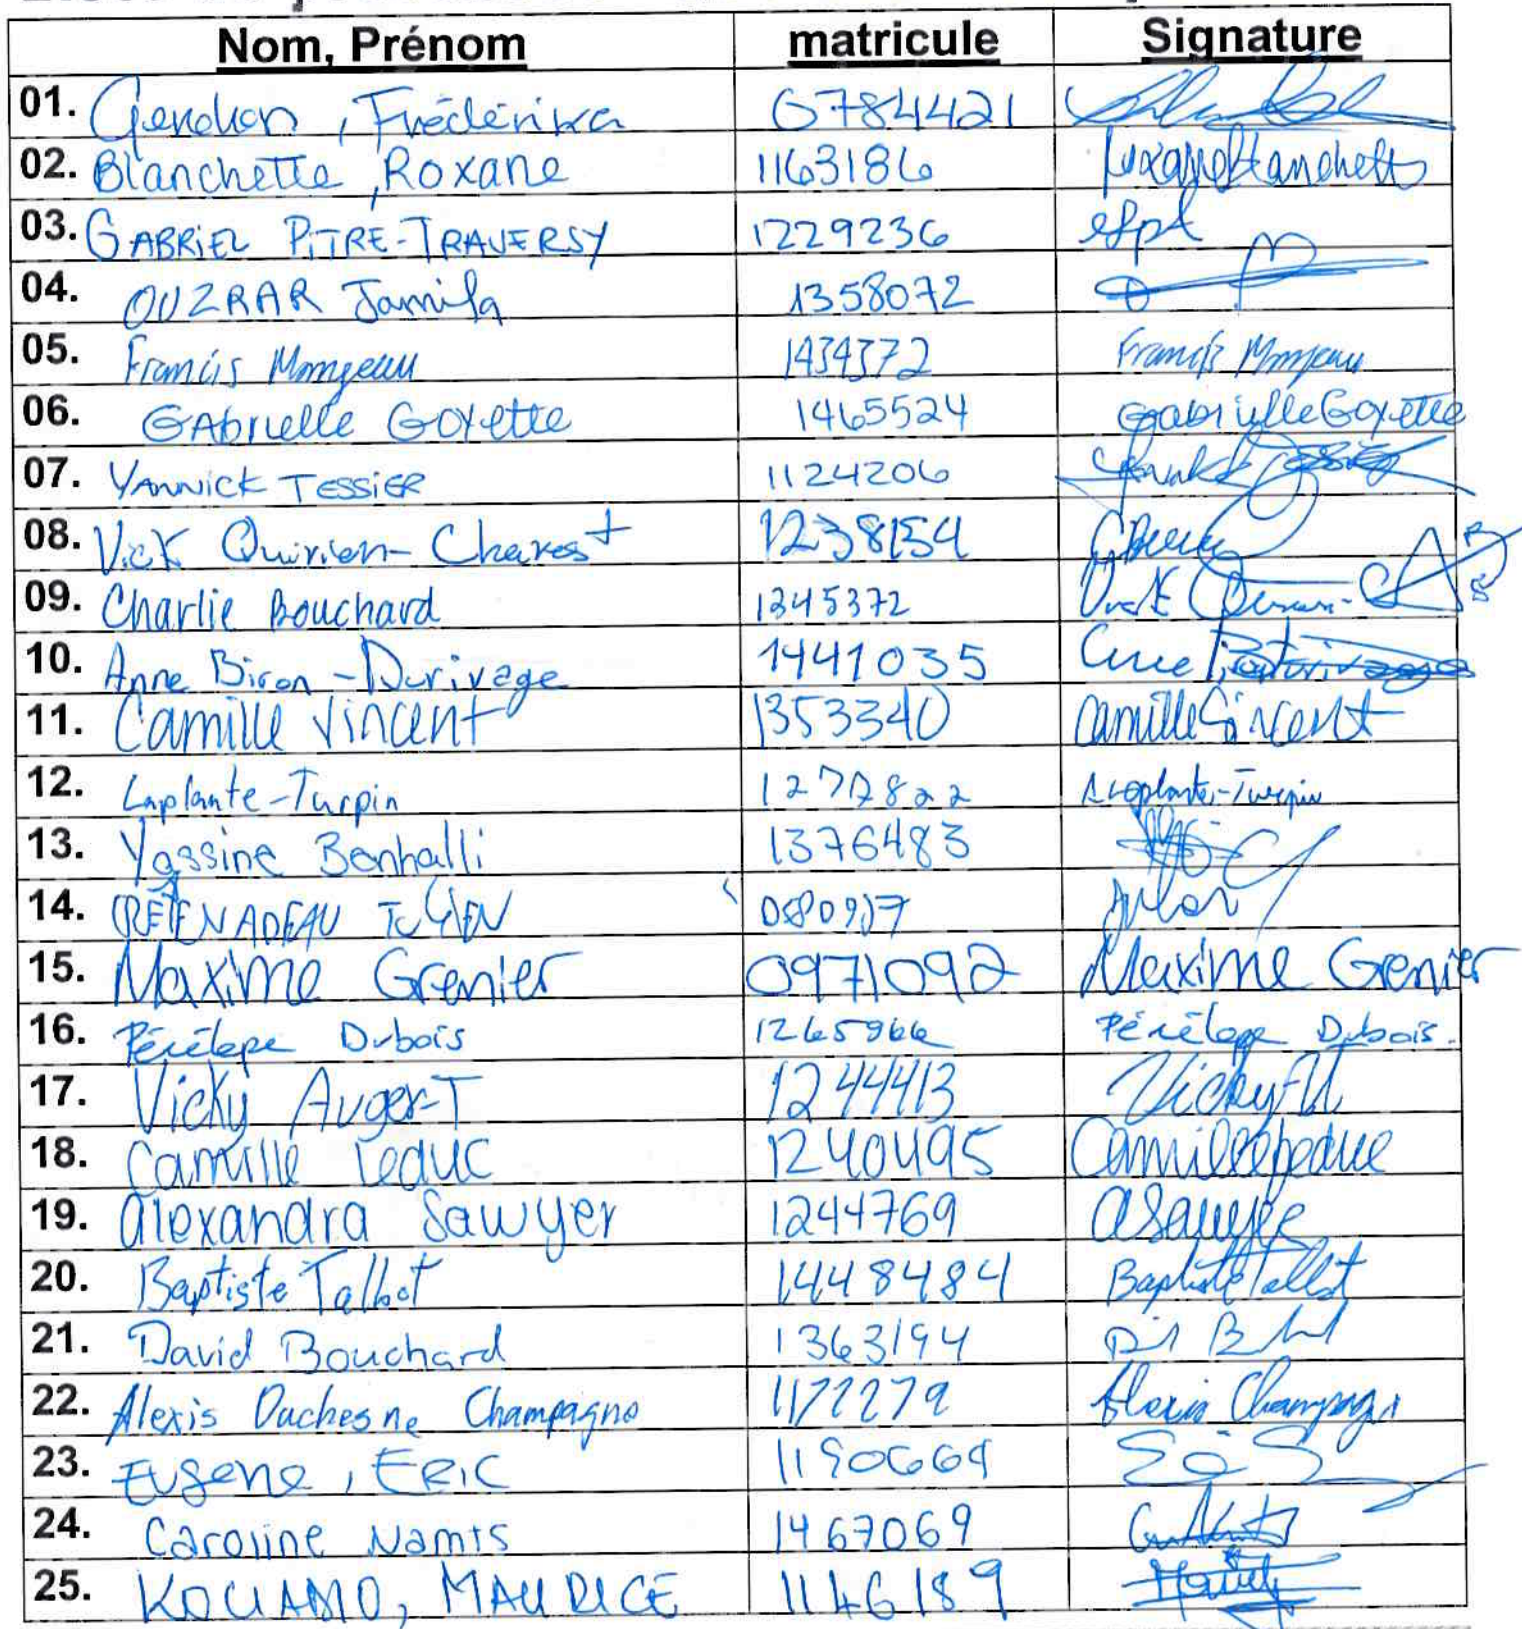 Nom, Prénom matricule Signature
01. Gendron, Frédérika 0784421
02. Blanchette, Roxane 1163186 Roxane Blanchette
03. GABRIEL PITRE-TRAVERSY 1229236 GPT
04. OUZRAR Jamila 1358072
05. Francis Mongeau 1434372 Francis Mongeau
06. GAbrielle GOYette 1465524 Gabrielle Goyette
07. YANNICK TESSIER 1124206
08. Vick Quirion-Charest 1238154
09. Charlie Bouchard 1245372
10. Anne Biron-Durivage 1441035
11. Camille Vincent 1353340 Camille Vincent
12. Laplante-Turpin Laplante-Turpin
13. Yassine Benhalli 1376483
14. NADEAU
15. Maxime Grenier 0971092 Maxime Grenier
16. Pénélope Dubois Pénélope Dubois.
17. Vicky Auger-T 1244413
18. Camille Leduc 1240495 Camille Leduc
19. Alexandra Sawyer 1244769 ASawyer
20. Baptiste Talbot 1448484 Baptiste Talbot
21. David Bouchard 1363194
22. Alexis Duchesne Champagne 1172279 Alexis Champagne
23. Eugene, ERIC 1190669
24. Caroline Namts 1467069
25. KOUAMO, MAURICE 1146189